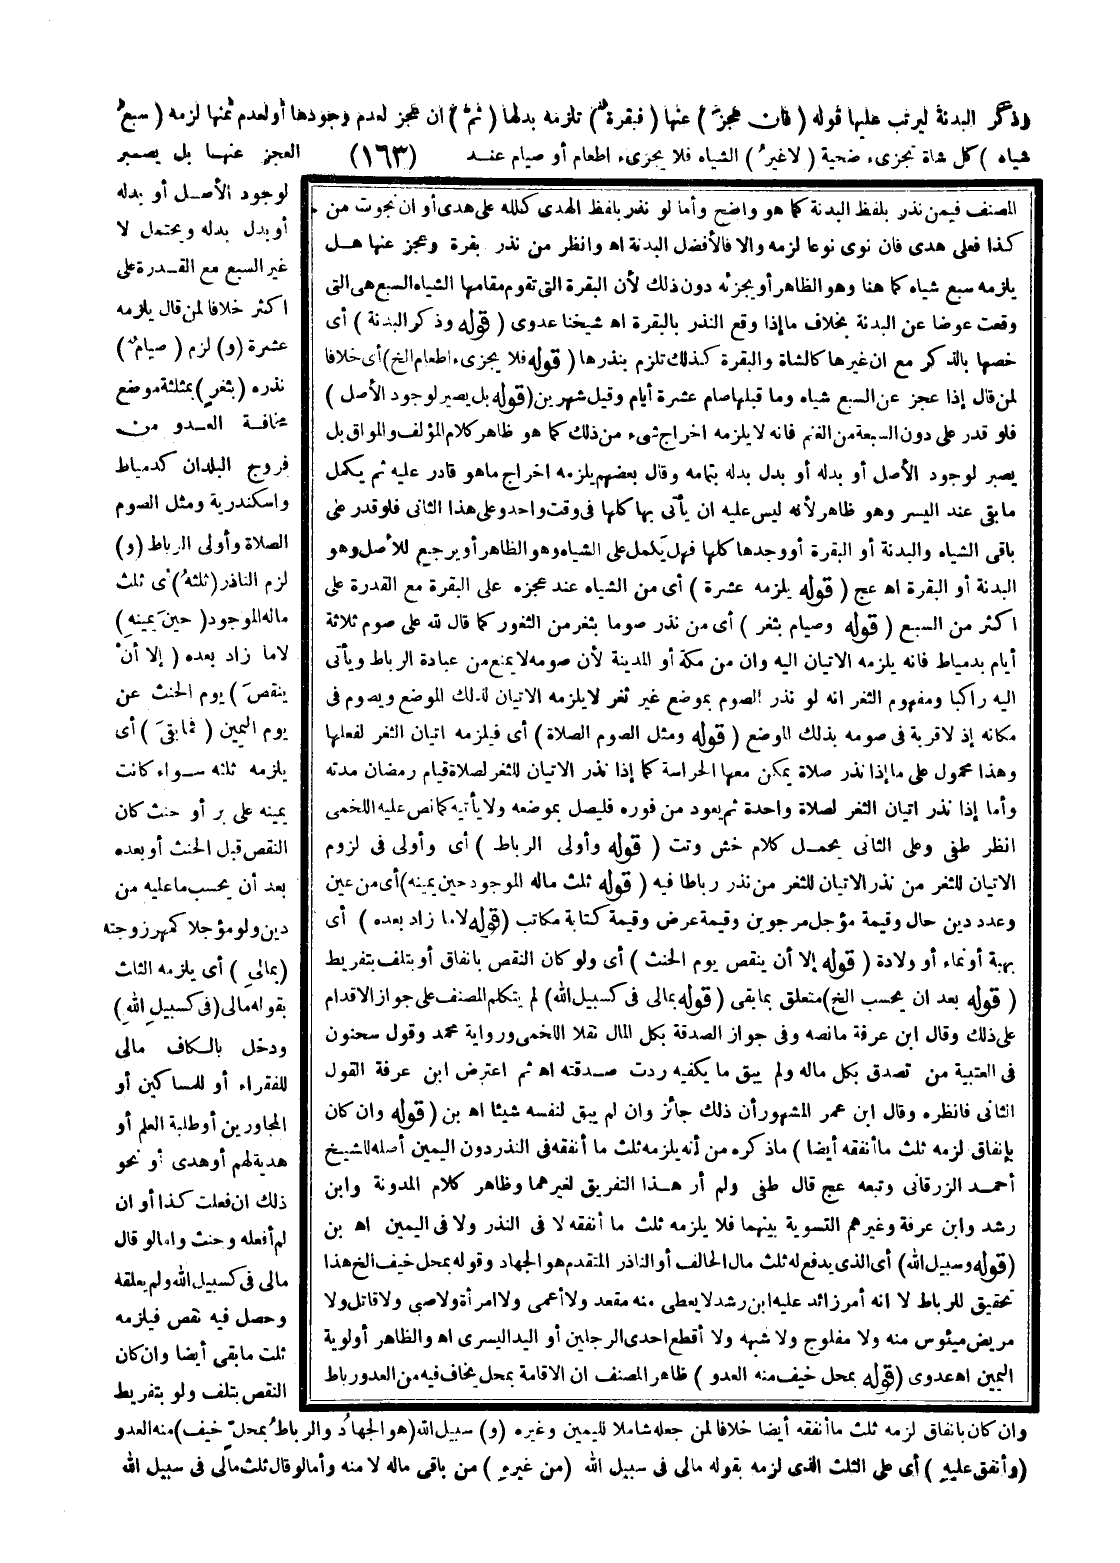 وذكر البدنة ليرتب عليها قوله (فان عجز) عنها (فبقرة) تلزمه بدلها (ثم) ان عجز لعدم وجودها أو لعدم ثمنها لزمه (سبع
شياه) كل شاة تجزىء ضحية (لا غير) الشياه فلا يجزىء اطعام أو صيام عند (١٦٣) العجز عنها بل يصبر
لوجود الأصل أو بدله
أو بدل بدله ويحتمل لا
غير السبع مع القدرة على
اكثر خلافا لمن قال يلزمه
عشرة (و) لزم (صيام)
نذره (بثغر) بمثلثة موضع
مخافة العدو من
فروج البلدان كدمياط
واسكندرية ومثل الصوم
الصلاة وأولى الرباط (و)
لزم الناذر (ثلثه) أى ثلث
ماله الموجود (حين يمينه)
لا ما زاد بعده (إلا أن
ينقص) يوم الحنث عن
يوم اليمين (فما بقى) أى
يلزمه ثلثه سواء كانت
يمينه على بر أو حنث كان
النقص قبل الحنث أو بعده
بعد أن يحسب ما عليه من
دين ولو مؤجلا كمهر زوجته
(بمالى) أى يلزمه الثلث
بقوله مالى (فى كسبيل الله)
ودخل بالكاف مالى
للفقراء أو للمساكين أو
المجاورين أو طلبة العلم أو
هدية لهم أو هدى أو نحو
ذلك ان فعلت كذا أو ان
لم أفعله وحنث وامالو قال
مالى فى كسبيل الله ولم يعلقه
وحصل فيه نقص فيلزمه
ثلث ما بقى أيضا وان كان
النقص بتلف ولو بتفريط
المصنف فيمن نذر بلفظ البدنة كما هو واضح وأما لو نذر بلفظ الهدى كلله على هدى أو ان نجوت من
كذا فعلى هدى فان نوى نوعا لزمه والا فالأفضل البدنة اه وانظر من نذر بقرة وعجز عنها هل
يلزمه سبع شياه كما هنا وهو الظاهر أو يجزئه دون ذلك لأن البقرة التى تقوم مقامها الشياه السبع هى التى
وقعت عوضا عن البدنة بخلاف ما إذا وقع النذر بالبقرة اه شيخنا عدوى (قوله وذكر البدنة) أى
خصها بالذكر مع ان غيرها كالشاة والبقرة كذلك تلزم بنذرها (قوله فلا يجزىء اطعام الخ) أى خلافا
لمن قال إذا عجز عن السبع شياه وما قبلها صام عشرة أيام وقيل شهرين (قوله بل يصبر لوجود الأصل)
فلو قدر على دون السبعة من الغنم فانه لا يلزمه اخراج شىء من ذلك كما هو ظاهر كلام المؤلف والمواق بل
يصبر لوجود الأصل أو بدله أو بدل بدله بتمامه وقال بعضهم يلزمه اخراج ماهو قادر عليه ثم يكمل
ما بقى عند اليسر وهو ظاهر لأنه ليس عليه ان يأتى بها كلها فى وقت واحد وعلى هذا الثانى فلو قدر على
باقى الشياه والبدنة أو البقرة أو وجدها كلها فهل يكمل على الشياه وهو الظاهر أو يرجع للأصل وهو
البدنة أو البقرة اه عج (قوله يلزمه عشرة) أى من الشياه عند عجزه على البقرة مع القدرة على
اكثر من السبع (قوله وصيام بثغر) أى من نذر صوما بثغر من الثغور كما قال لله على صوم ثلاثة
أيام بدمياط فانه يلزمه الاتيان اليه وان من مكة أو المدينة لأن صومه لا يمنع من عبادة الرباط ويأتى
اليه راكبا ومفهوم الثغر انه لو نذر الصوم بموضع غير ثغر لا يلزمه الاتيان لذلك الموضع ويصوم فى
مكانه إذ لا قربة فى صومه بذلك الموضع (قوله ومثل الصوم الصلاة) أى فيلزمه اتيان الثغر لفعلها
وهذا محمول على ما إذا نذر صلاة يمكن معها الحراسة كما إذا نذر الاتيان للثغر لصلاة قيام رمضان مدته
وأما إذا نذر اتيان الثغر لصلاة واحدة ثم يعود من فوره فليصل بموضعه ولا يأتيه كما نص عليه اللخمى
انظر طفى وعلى الثانى يحمل كلام خش وتت (قوله وأولى الرباط) أى وأولى فى لزوم
الاتيان للثغر من نذر الاتيان للثغر من نذر رباطا فيه (قوله ثلث ماله الموجود حين يمينه) أى من عين
وعدد دين حال وقيمة مؤجل مرجوين وقيمة عرض وقيمة كتابة مكاتب (قوله لا ما زاد بعده) أى
بهبة أو نماء أو ولادة (قوله إلا أن ينقص يوم الحنث) أى ولو كان النقص بانفاق أو بتلف بتفريط
(قوله بعد ان يحسب الخ) متعلق بما بقى (قوله بمالى فى كسبيل الله) لم يتكلم المصنف على جواز الاقدام
على ذلك وقال ابن عرفة مانصه وفى جواز الصدقة بكل المال نقلا اللخمى ورواية محمد وقول سحنون
فى العتبية من تصدق بكل ماله ولم يبق ما يكفيه ردت صدقته اه ثم اعترض ابن عرفة القول
الثانى فانظره وقال ابن عمر المشهور أن ذلك جائز وان لم يبق لنفسه شيئا اه بن (قوله وان كان
بإنفاق لزمه ثلث ما أنفقه أيضا) ماذكره من أنه يلزمه ثلث ما أنفقه فى النذر دون اليمين أصله للشيخ
أحمد الزرقانى وتبعه عج قال طفى ولم أر هذا التفريق لغيرهما وظاهر كلام المدونة وابن
رشد وابن عرفة وغيرهم التسوية بينهما فلا يلزمه ثلث ما أنفقه لا فى النذر ولا فى اليمين اه بن
(قوله وسبيل الله) أى الذى يدفع له ثلث مال الحالف أو الناذر المتقدم هو الجهاد وقوله بمحل خيف الخ هذا
تحقيق للرباط لا انه أمر زائد عليه ابن رشد لا يعطى منه مقعد ولا أعمى ولا امرأة ولا صبى ولا قاتل ولا
مريض ميئوس منه ولا مفلوج ولا شبهه ولا أقطع احدى الرجلين أو اليد اليسرى اه والظاهر أولوية
اليمين اه عدوى (قوله بمحل خيف منه العدو) ظاهر المصنف ان الاقامة بمحل يخاف فيه من العدو رباط
وان كان بانفاق لزمه ثلث ما أنفقه أيضا خلافا لمن جعله شاملا لليمين وغيره (و) سبيل الله (هو الجهاد والرباط بمحل خيف) منه العدو
(وأنفق عليه) أى على الثلث الذى لزمه بقوله مالى فى سبيل الله (من غيره) من باقى ماله لا منه وأمالو قال ثلث مالى فى سبيل الله